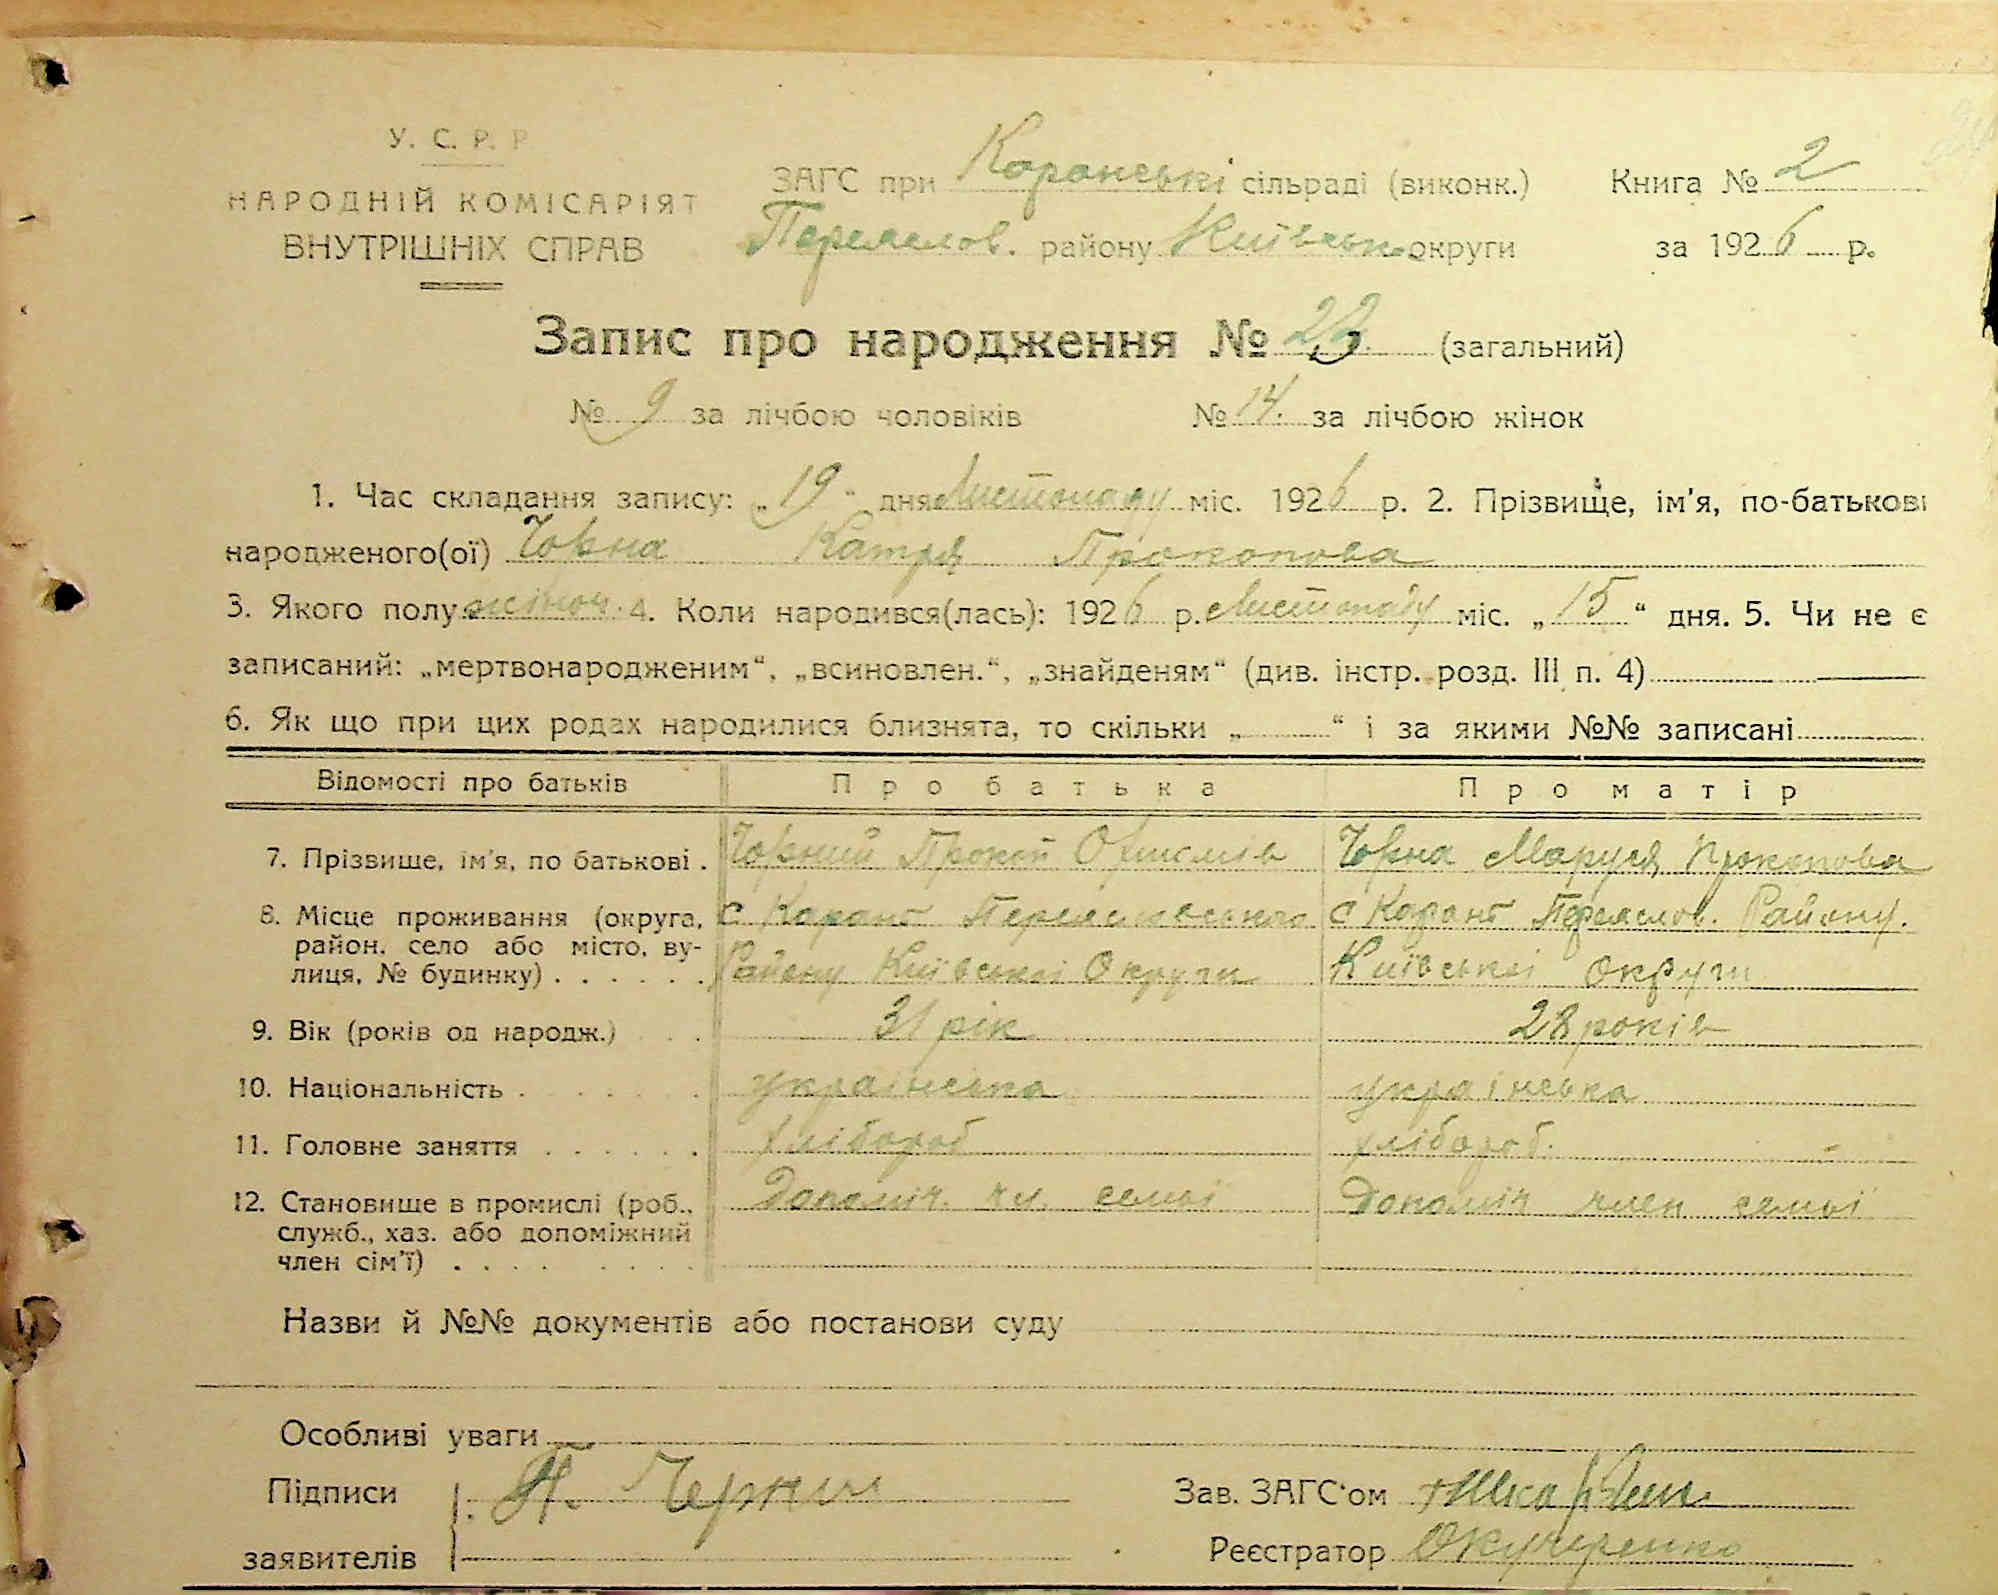 У. С. Р. Р.
НАРОДНІЙ КОМІСАРІЯТ
ВНУТРІШНІХ СПРАВ
ЗАГС при Каранські сільраді (виконк.) Книга № 2
Переяслов. району Київськ округи за 1926 р.
Запис про народження № 23 (загальний)
№ 9 за лічбою чоловіків № 14. за лічбою жінок
1. Час складання запису: „19“ дня Листопаду міс. 1926 р. 2. Прізвище, ім'я, по-батькові
народженого(ої) Чорна Катря Прокопова
3. Якого полу жіноч. 4. Коли народився(лась): 1926 р. Листопаду міс. „15“ дня. 5. Чи не є
записаний: „мертвонародженим“, „всиновлен.“, „знайденям“ (див. інстр. розд. III п. 4)
6. Як що при цих родах народилися близнята, то скільки „ “ і за якими №№ записані
Відомості про батьків Про батька Про матір
7. Прізвише, ім'я, по батькові . Чорний Прокіп Чорна Маруся Прокопова
8. Місце проживання (округа, с Карань Переяславського с Карань Переяслов. Району.
район, село або місто, ву-
лиця, № будинку) . . . . . . Району Київської Округи Київської округи
9. Вік (років од народж.) . . . 31 рік 28 років
10. Національність . . . . . . українська українська
11. Головне заняття . . . . . . хлібороб хлібороб.
12. Становише в промислі (роб., Допоміч. чл. семьї Допоміч член семьї
служб., хаз. або допоміжний
член сім'ї) . . . . . . . .
Назви й №№ документів або постанови суду
Особливі уваги
Підписи П. Зав. ЗАГС'ом
заявителів Реєстратор ОКучеренко